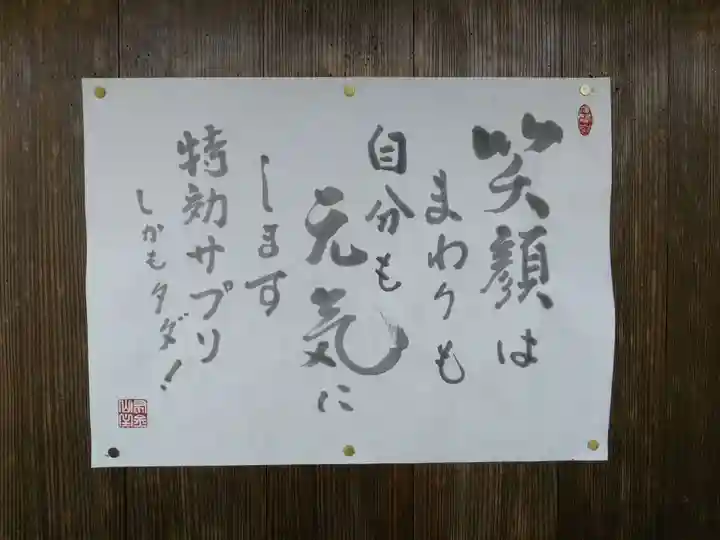 笑顔は
まわりも
自分も
元気に
します
特効サプリ
しかもタダ！